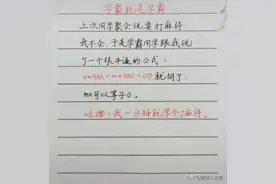 学霸就是学霸
上次同学聚会说要打麻将
我不会,于是学霸同学跟我说
了一个很牛逼的公式:
n*AAA+m*ABC+DD 就胡了.
mn可以等于0。
吐槽:我一分钟就学会了麻将。